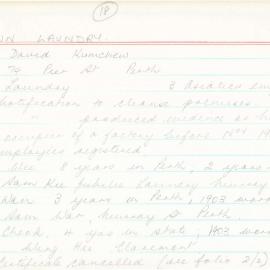 18
WN LAUNDRY.
David Kumchew
74 Pier St Perth
Laundry 3 Asiatics em
Notification to cleanse premises
" produced evidence as h
occupier of a factory before
employees registered
Wee 8 years in Perth, 2 years
Sam Kee Jubilee Laundry Murray
Wan 3 years in Perth, 1903
Sam War, Murray St Perth.
Check, 4 yrs in state, 1903
Hing Kee Claremont
Certificate cancelled (see folio 2/2)